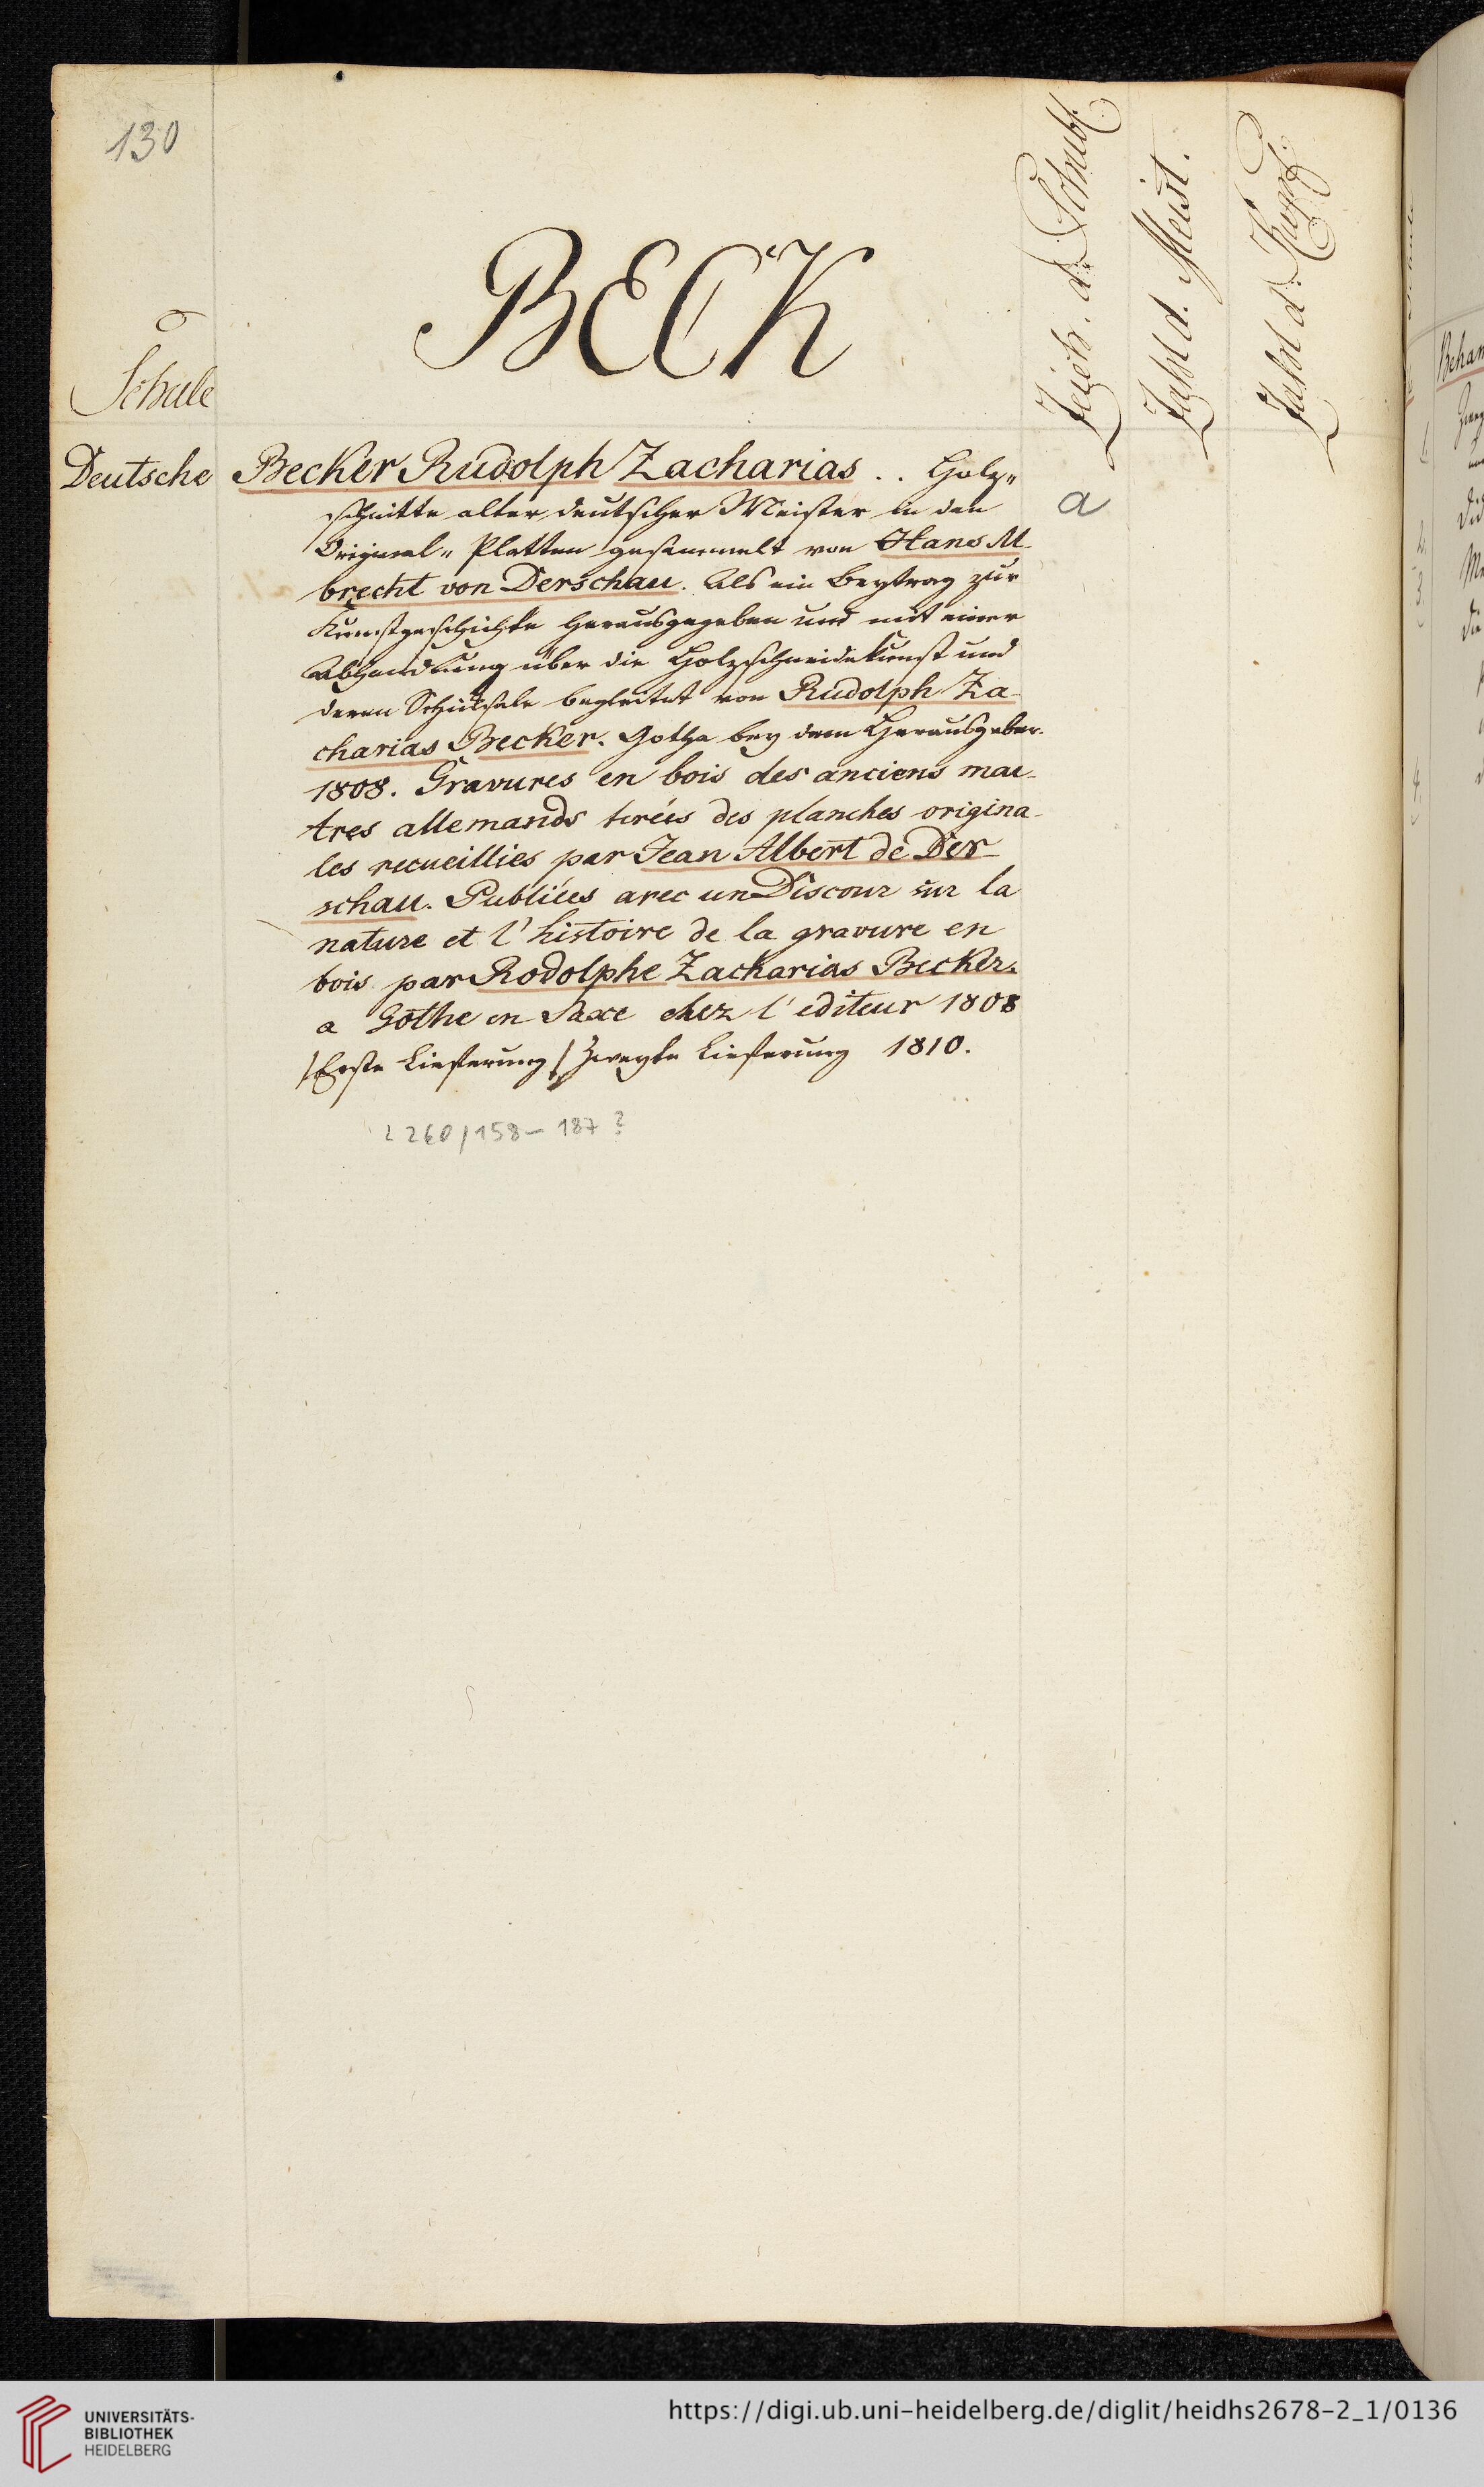 130
BECK
Schule
Zeich. d. Schubl.
Zahl d. Meist.
Zahl d. Kupf.
Deutsche
Becker Rudolph Zacharias .. Holz„
schnitte alter deutscher Meister in den
Original„ Platten gesammelt von Hans Al
brecht von Derschau. Als ein Beytrag zur
Kunstgeschichte herausgegeben und mit einer
Abhandlung über die Holzschneidekunst und
deren Schicksale begleitet von Rudolph Za-
charias Becker. Gotha bey dem Herausgeber.
1808. Gravures en bois des anciens mai-
tres allemands tirées des planches origina-
les recueillies par Jean Albert de Der-
schau. Publiées avec un Discour sur la
nature et l'histoire de la gravure en
bois par Rodolphe Zacharias Becker.
a Gothe en Saxe chez l'editeur 1808
/Erste Lieferung/ Zweyte Lieferung 1810.
a
2260/158-187?
Behan
UNIVERSITÄTS-
BIBLIOTHEK
HEIDELBERG
https://digi.ub.uni-heidelberg.de/diglit/heidhs2678-2_1/0136